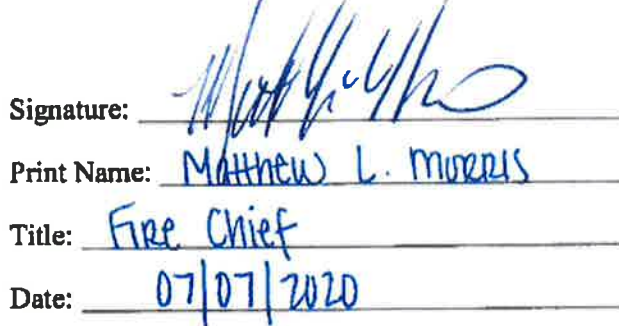 Signature:
Print Name: Matthew L. Morris
Title: Fire Chief
Date: 07/07/2020